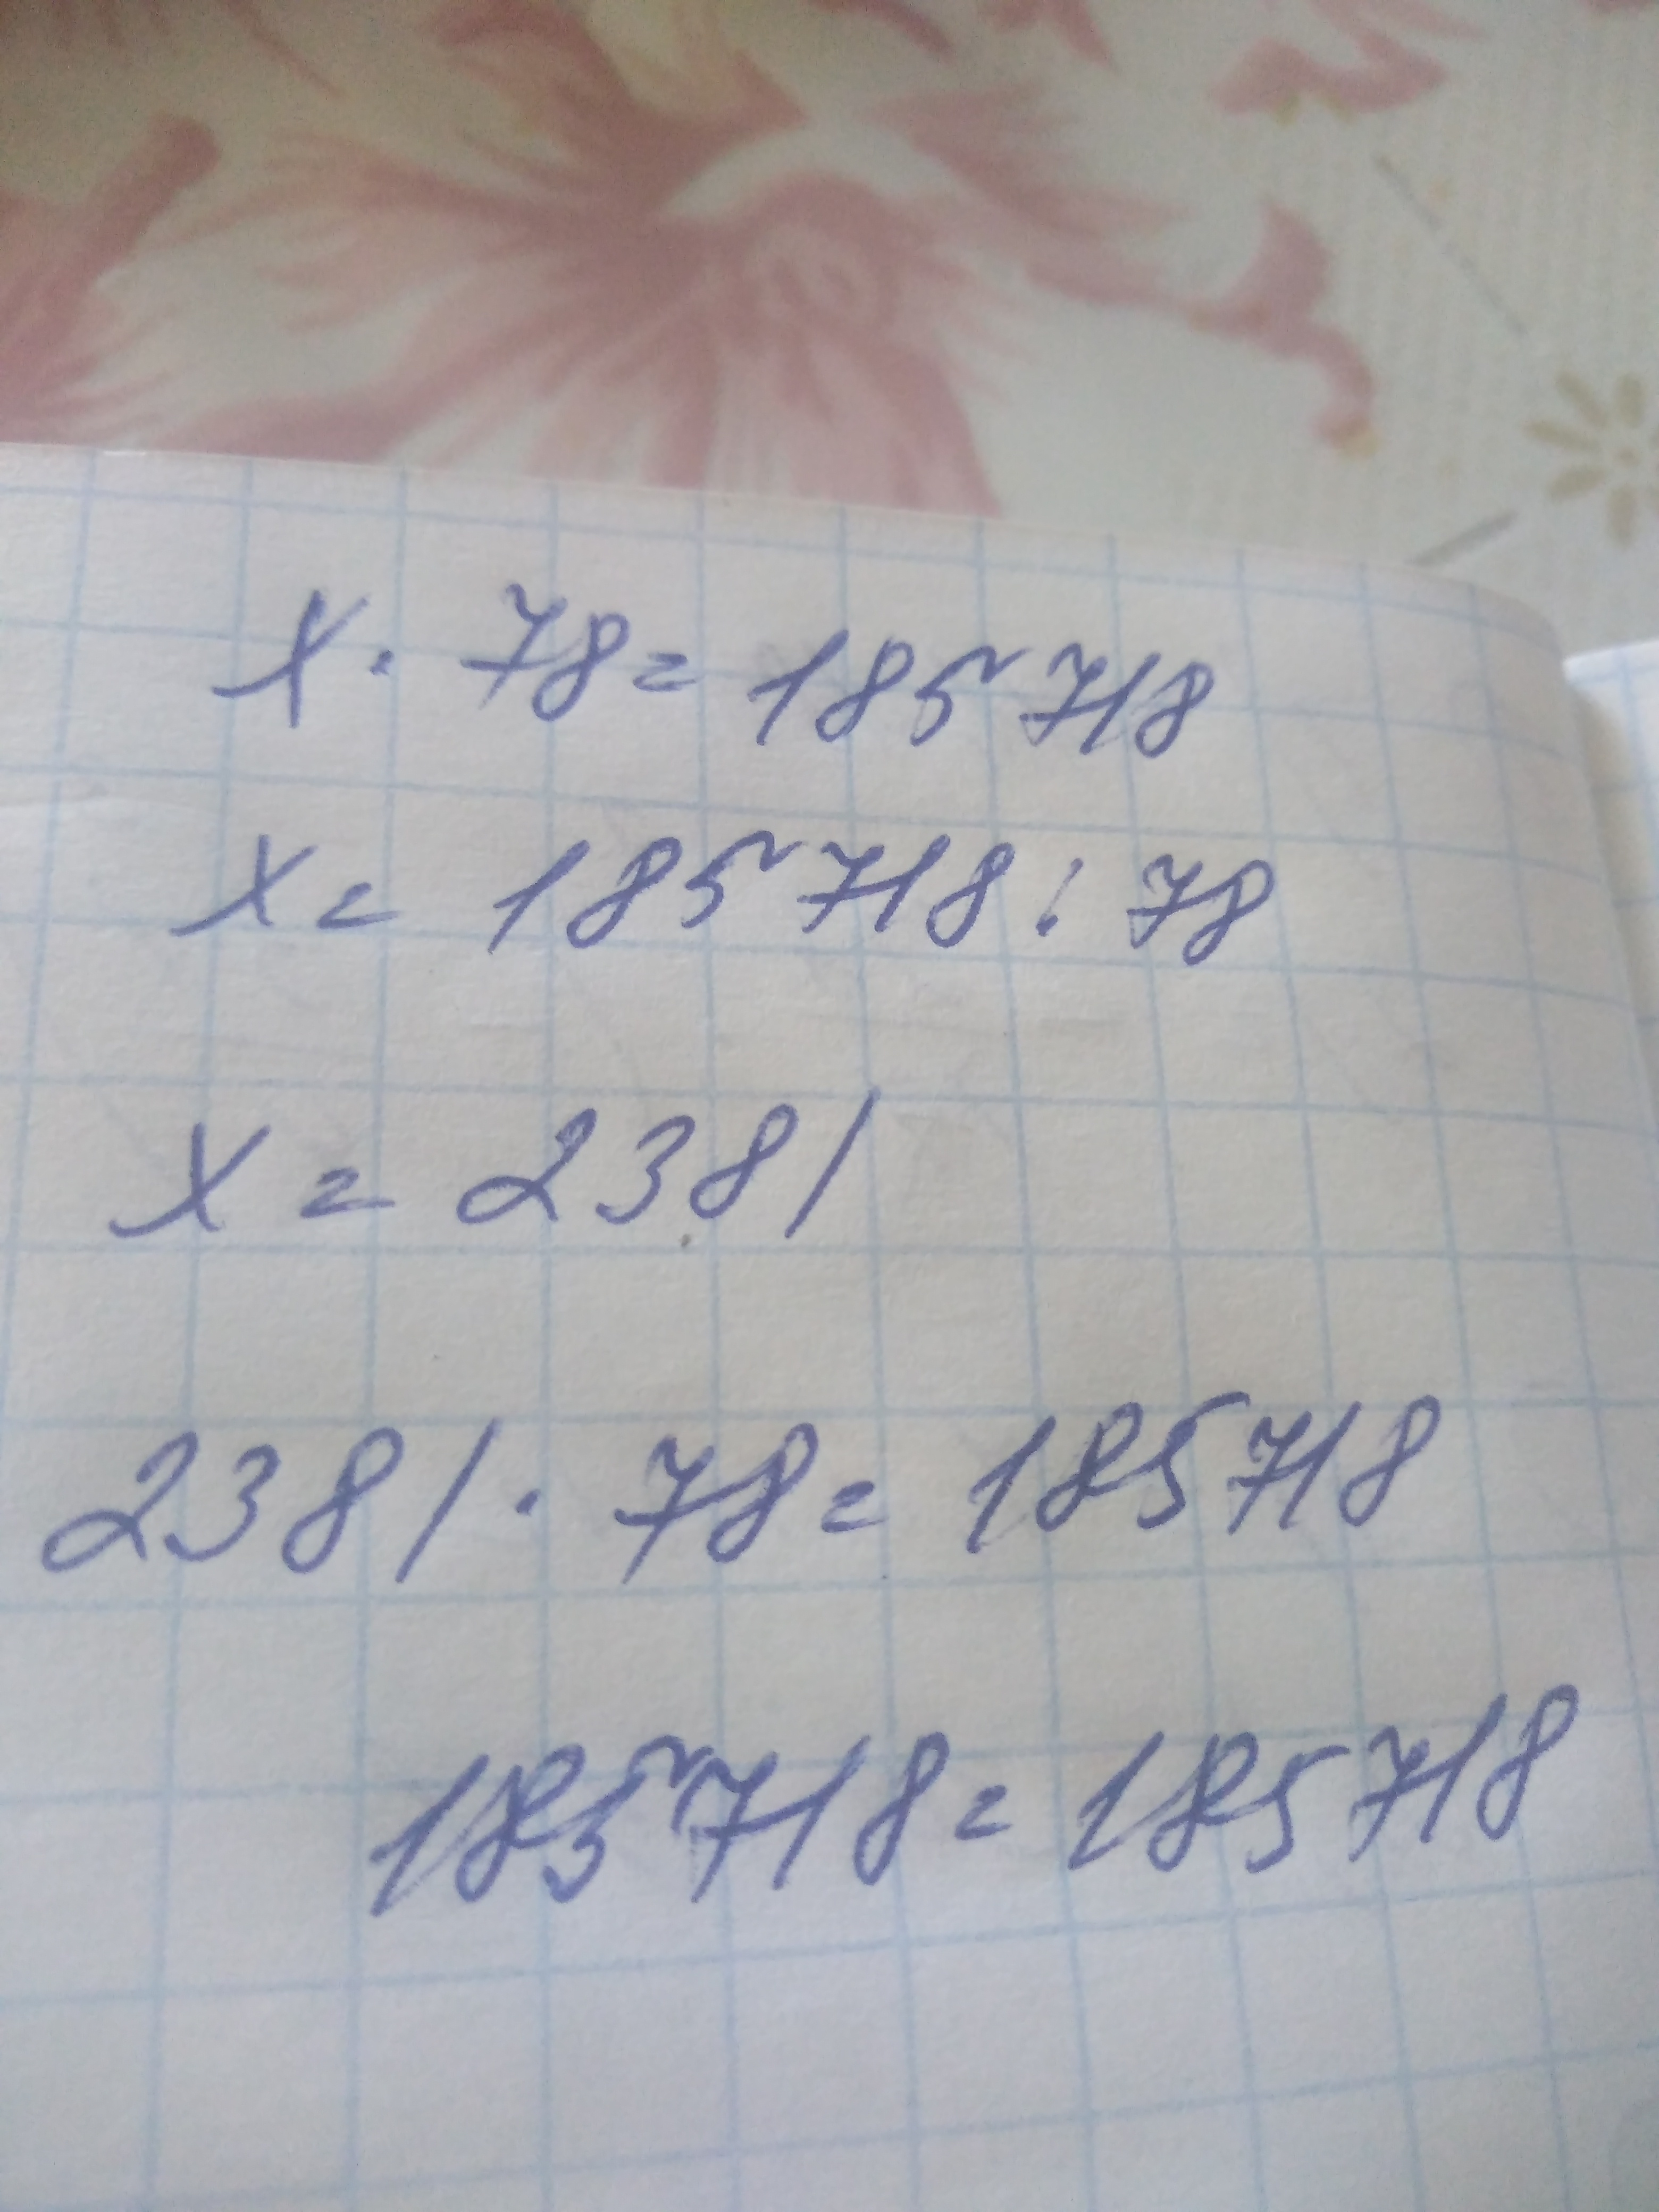 x · 78 = 185718
x = 185718 : 78
x = 2381
2381 · 78 = 185718
185718 = 185718